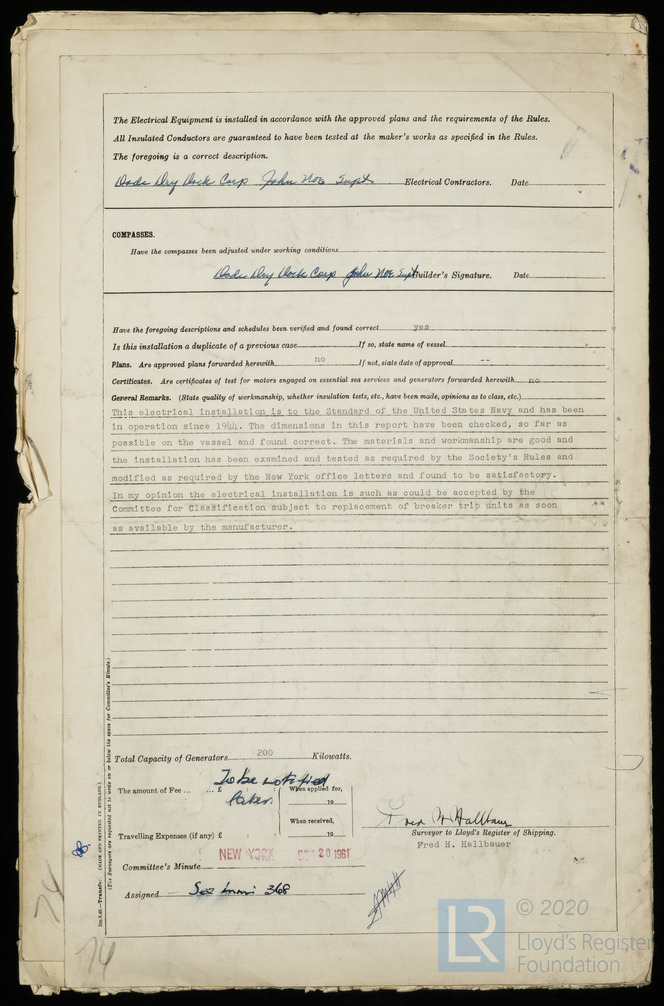 The Electrical Equipment is installed in accordance with the approved plans and the requirements of the Rules.
All Insulated Conductors are guaranteed to have been tested at the maker's works as specified in the Rules.
The foregoing is a correct description.
Dodc Dry Dock Corp John Noe Supt Electrical Contractors. Date
COMPASSES.
Have the compasses been adjusted under working conditions
Dodc Dry Dock Corp John Noe Supt Builder's Signature. Date
Have the foregoing descriptions and schedules been verified and found correct yes
Is this installation a duplicate of a previous case If so, state name of vessel
Plans. Are approved plans forwarded herewith no If not, state date of approval --
Certificates. Are certificates of test for motors engaged on essential sea services and generators forwarded herewith no
General Remarks. (State quality of workmanship, whether insulation tests, etc., have been made, opinions as to class, etc.)
This electrical installation is to the Standard of the United States Navy and has been
in operation since 1944. The dimensions in this report have been checked, so far as
possible on the vessel and found correct. The materials and workmanship are good and
the installation has been examined and tested as required by the Society's Rules and
modified as required by the New York office letters and found to be satisfactory.
In my opinion the electrical installation is such as could be accepted by the
Committee for Classification subject to replacement of breaker trip units as soon
as available by the manufacturer.
Total Capacity of Generators 200 Kilowatts.
The amount of Fee ... ... £ To be notified later. When applied for, 19
When received, 19
Travelling Expenses (if any) £ : :
Fred H. Hallbauer
Surveyor to Lloyd's Register of Shipping.
Fred H. Hallbauer
NEW YORK DEC 20 1961
Committee's Minute
Assigned See 368
(MADE AND PRINTED IN ENGLAND.)
(The Surveyors are requested not to write on or below the space for Committee's Minute.)
74
74
LR © 2020
Lloyd's Register
Foundation